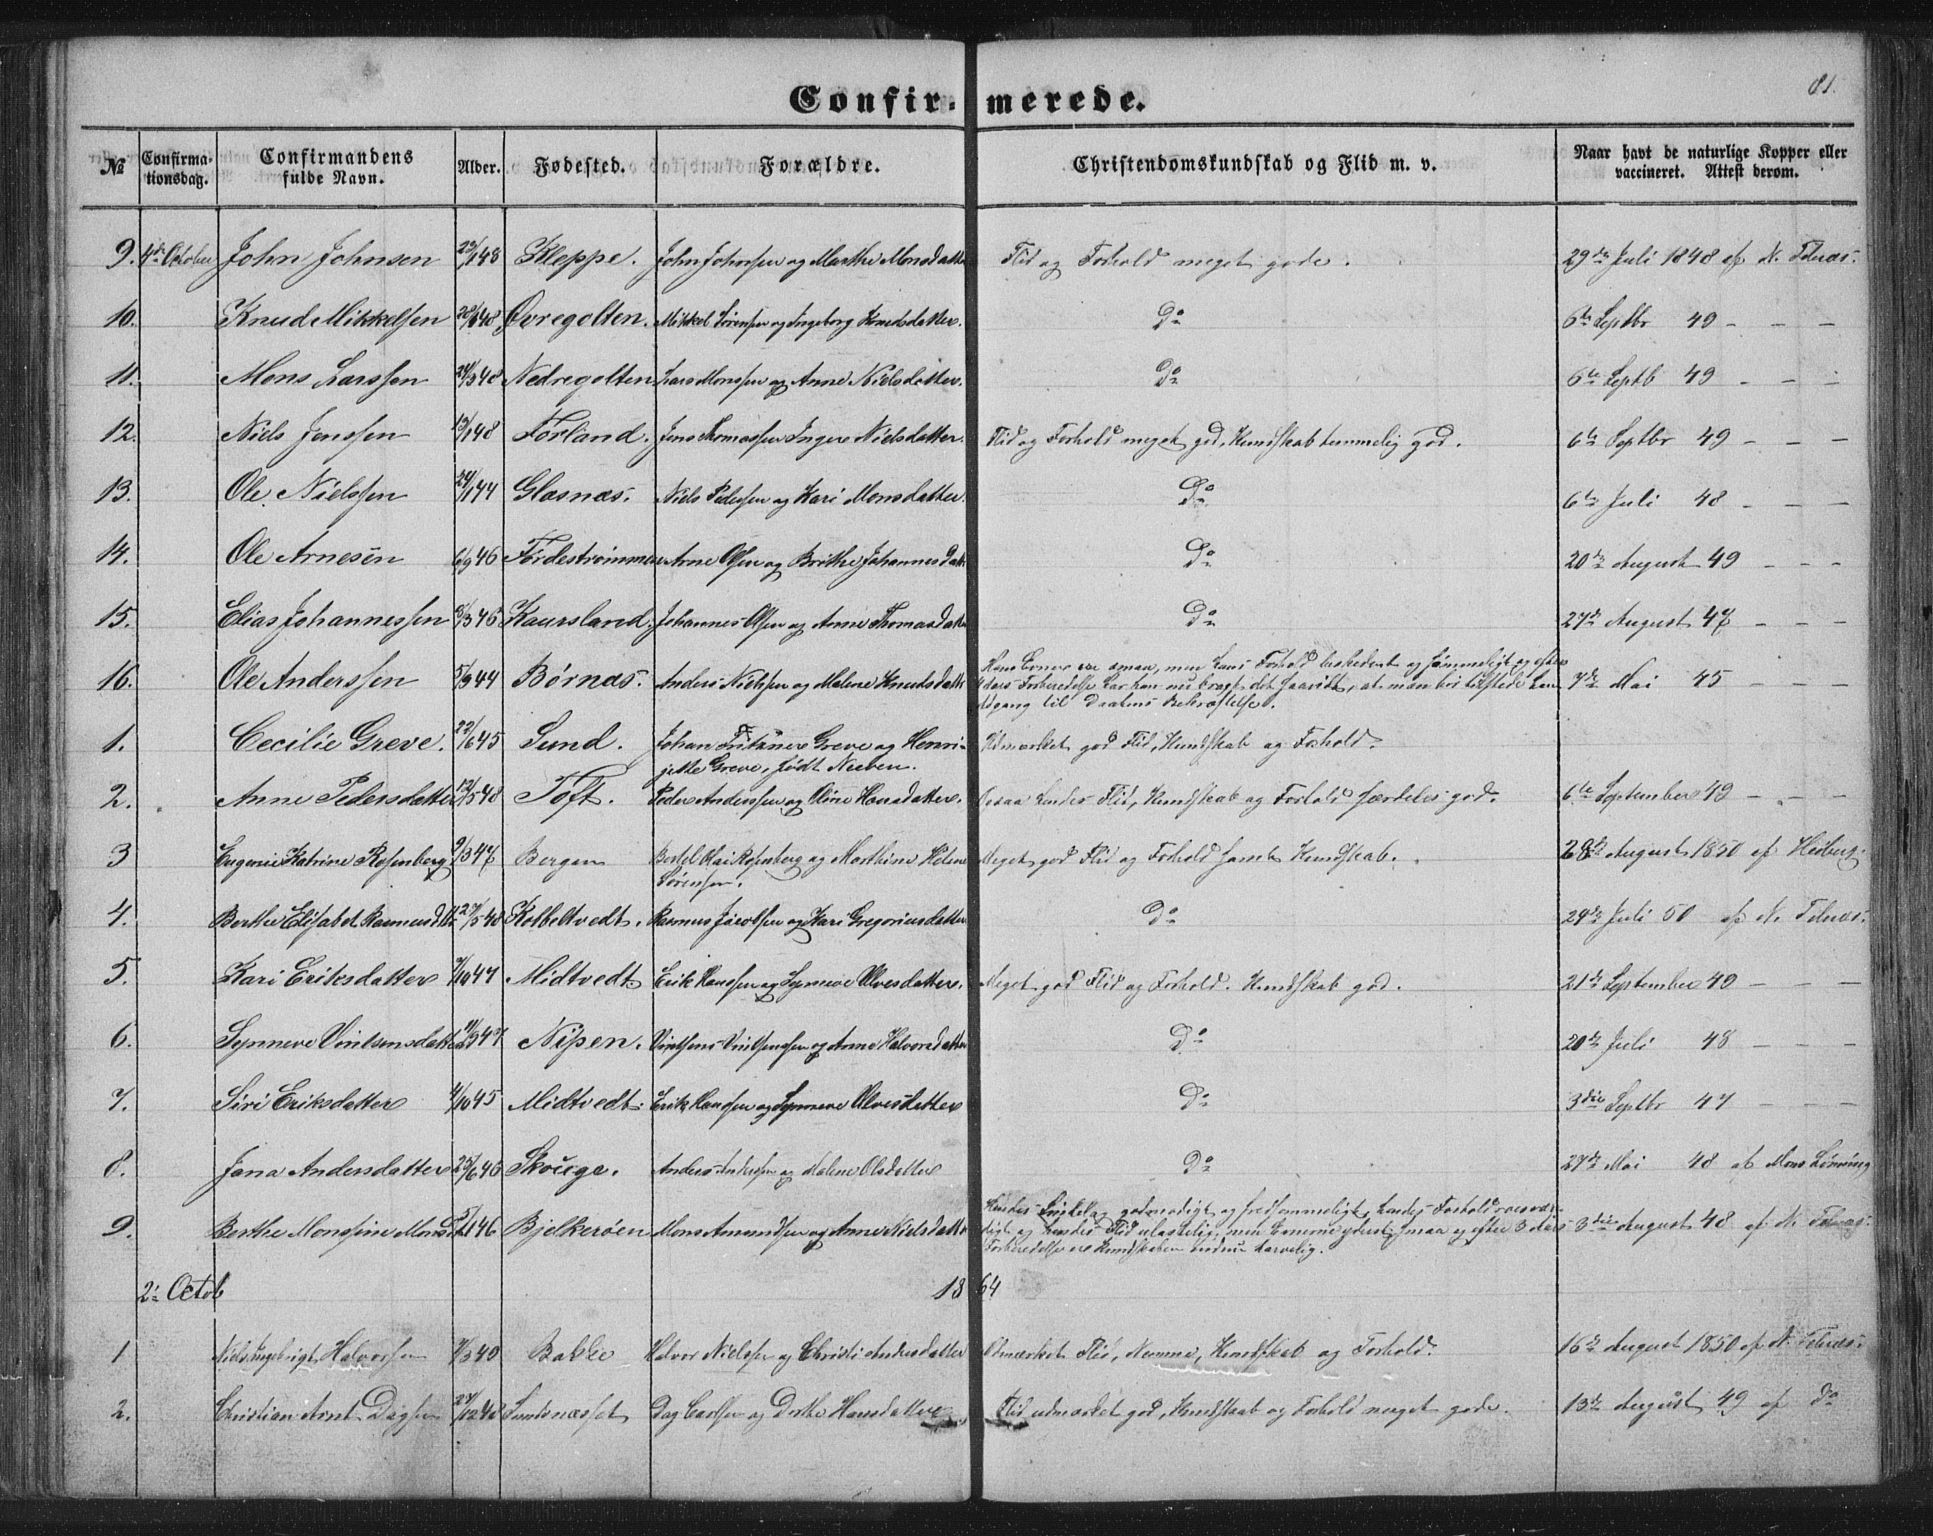 81.
Confirmerede.
№ Confirmationsdag. Confirmandens fulde Navn. Alder. Fødested. Forældre. Christendomskundskab og Flid m. v. Naar havt de naturlige Kopper eller vaccineret. Attest derom.
9. 4de October John Johnsen 148 Kleppe. John Johnsen og Marthe Monsdatter Flid og Forhold meget gode. 29de Juli 1848 af N. Telnæs.
10. Knud Mikkelsen 48 Øvregolten. Mikkel Sørensen og Ingeborg Knudsdatter. Do 6te Septbr 49 - - -
11. Mons Larssen 48 Nedregolten Lars Monssen og Anne Nielsdatter. Do 6te Septb 49 - - -
12. Niels Jenssen 13/1 48 Førland. Jens Thomassen Inger Nielsdatter. Flid og Forhold meget god, Kundskab temmelig god. 6te Septbr 49 - - -
13. Ole Nielssen 24/1 44 Glæsnæs. Niels Pedersen og Kari Monsdatter. Do 6te Juli 48 - - -
14. Ole Arnesen 6/9 46 Førdestrømmen Arne Olsen og Brithe Johannesdatt Do 20de August 49 - - -
15. Elias Johannessen 3 46 Kaursland. Johannes Olsen og Anne Thomasdatter Do 27de August 47 - - -
16. Ole Anderssen 5/3 44 Børnæs. Anders Nielssen og Malene Knudsdatt Hans Evner ere smaa, men hans Forhold beskedent og sømmeligt, og efter
Aars Forberedelse har han nu bragt det saavidt, at man bør tilstede ham 7de Mai 45 - - -
Adgang til Daabens Bekræftelse.
1. Cecilie Greve. 22/6 45 Sund. Johan Fritzner Greve og Henri- Udmærket god Flid, Kundskab og Forhold.
jette Greve, født
2. Anne Pedersdatter 13/5 48 Toft. Peder Anderssen og Oline Hansdatter. Ogsaa hendes Flid, Kundskab og Forhold særdeles god. 6te September 49 - - -
3 Eugenie Katrine Rosenberg 9/3 47 Bergen Bertel Kai Rosenberg og Marthine Helene Meget god Flid og Forhold samt Kundskab. 28de August 1850 af Heiberg.
Sørensen.
4. Berthe Elisabet Rasmusdtt. 27/5 48 Kolbeltvedt. Rasmus Jacobsen og Kari Gregoriusdatter Do 24de Juli 50 af N. Telnæs.
5. Kari Eriksdatter /10 47 Midtvedt Erik Hanssen og Synneve Olvesdatter. Meget god Flid og Forhold. Kundskab god. 21de September 49 - - -
6. Synneve Vintsensdatter 3 47 Nipen. Vintsens Vintsenssen og Anne Halvorsdatter Do 20de Juli 48 - - -
7. Siri Eriksdatter 4/10 45 Midtvedt. Erik Hanssen og Synneve Olvesdatter Do 3die Septbr 47 - - -
8. Jana Andersdatter 25/6 46 Skouge. Anders Anderssen og Malene Olsdatter Do 27de Mai 48 af Mons Lønning
9. Berthe Monssine Monsd. 46 Bjelkerøen Mons Amundsen og Anne Nielsdatter Hendes godmodigt og fredsommeligt, hendes Forhold rosvær-
digt og hendes Flid ulastelig, men Evnerne yderst smaa og efter 3 Aars 3die August 48 af N. Telnæs.
Forberedelse ere Kundskaben endnu tarvelig.
2. Octob 1864
1 Niels Ingebrigt Halvorsen 3 49 Bakke Halvor Nielsen og Christi Andersdatter Udmærket Flid, Nemme, Kundskab og Forhold. 16de August 1850 af N. Telnæs.
2. Christian Arnt Dagsen 27/12 48 Dag Carlsen og Dorthe Hansdatter Flid udmærket god, Kundskab og Forhold meget gode. 13de August 49 af do